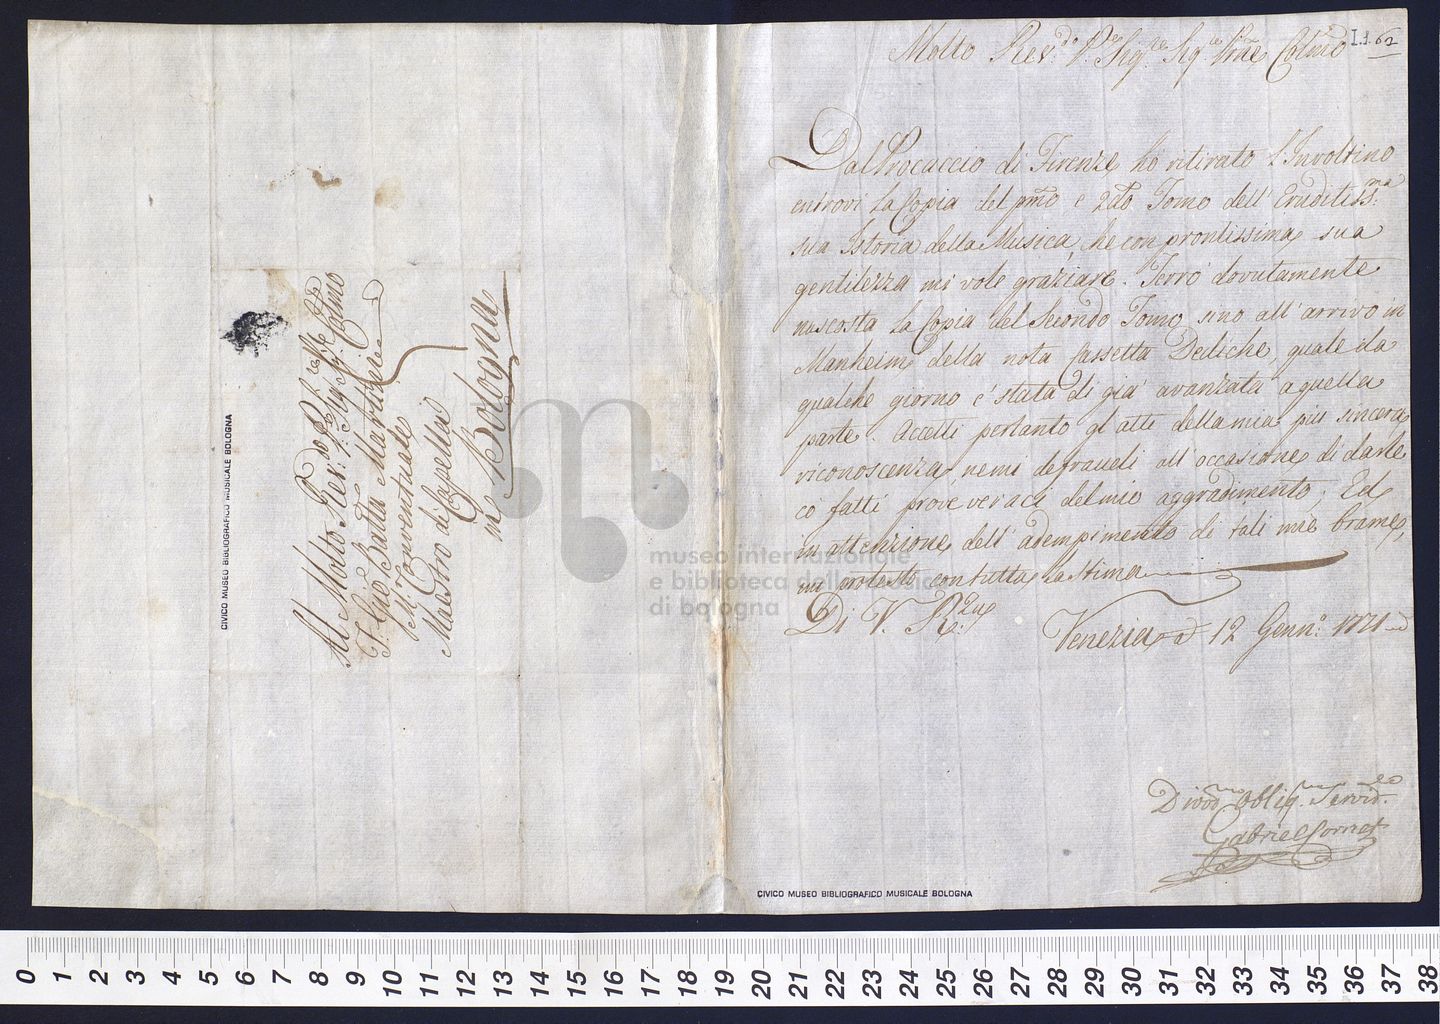 Molto Rev.do P.re Sig.re Sig.re P.rne Colmo
I.1.62
Dal Procaccio di Firenze ho ritirato l'Involtino
entrovi la Copia del pmo e 2do Tomo dell'Eruditiss:ma
sua Istoria della Musica, che con prontissima sua
gentilezza mi vole graziare. Terrò dovutamente
nascosta la Copia del Secondo Tomo sino all'arrivo in
Manheim della nota Cassetta Dediche, quale da
qualche giorno è stata di già avanzata a quella
parte. Accetti pertanto gl'atti della mia più sincera
riconoscenza, ne mi defraudi all'occasione di darle
co' fatti prove veraci del mio aggradimento; Ed
in attenzione dell'adempimento di tali mie brame,
mi protesto con tutta la stima
Di V. R.za
Venezia a 12 Genn.o 1771
Divot.mo Obblig.mo Servid.re
Gabriel Cornet
Al Molto Rev:do P.re
F. Gio: Batta Martini
M.r Conventuale
Maestro di Capella
in Bologna
CIVICO MUSEO BIBLIOGRAFICO MUSICALE BOLOGNA
CIVICO MUSEO BIBLIOGRAFICO MUSICALE BOLOGNA
museo internazionale
e biblioteca della musica
di bologna
0 1 2 3 4 5 6 7 8 9 10 11 12 13 14 15 16 17 18 19 20 21 22 23 24 25 26 27 28 29 30 31 32 33 34 35 36 37 38